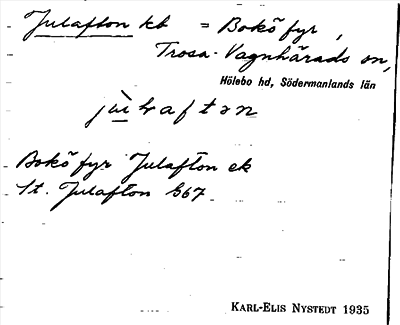 Julafton kb = Bokö fyr,
Trosa-Vagnhärads sn,
Hölebo hd, Södermanlands län
Bokö fyr Julafton ek
St. Julafton G67
KARL-ELIS NYSTEDT 1935